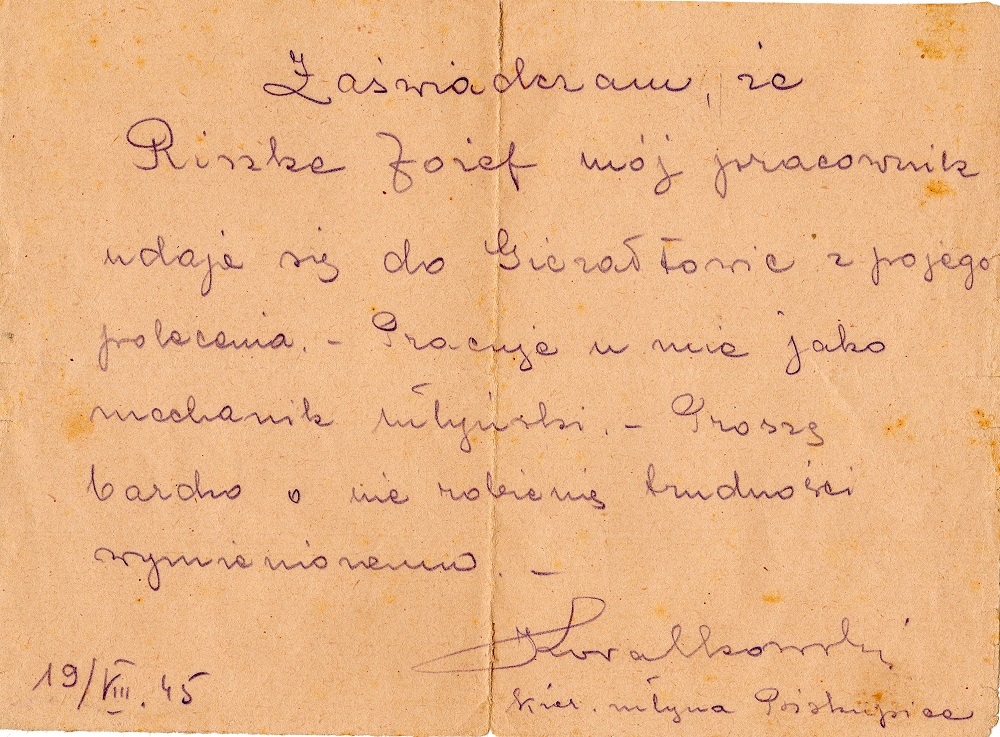 Zaświadczam, że
Riszke Józef mój pracownik
udaje się do Gierałtowic z pojego
polecenia. – Pracuje u mie jako
mechanik młyński. – Proszę
bardzo o nie robienię trudności
wymienionemu. –
Kowalkowski
19/VIII.45
kier. młyna Biskupice